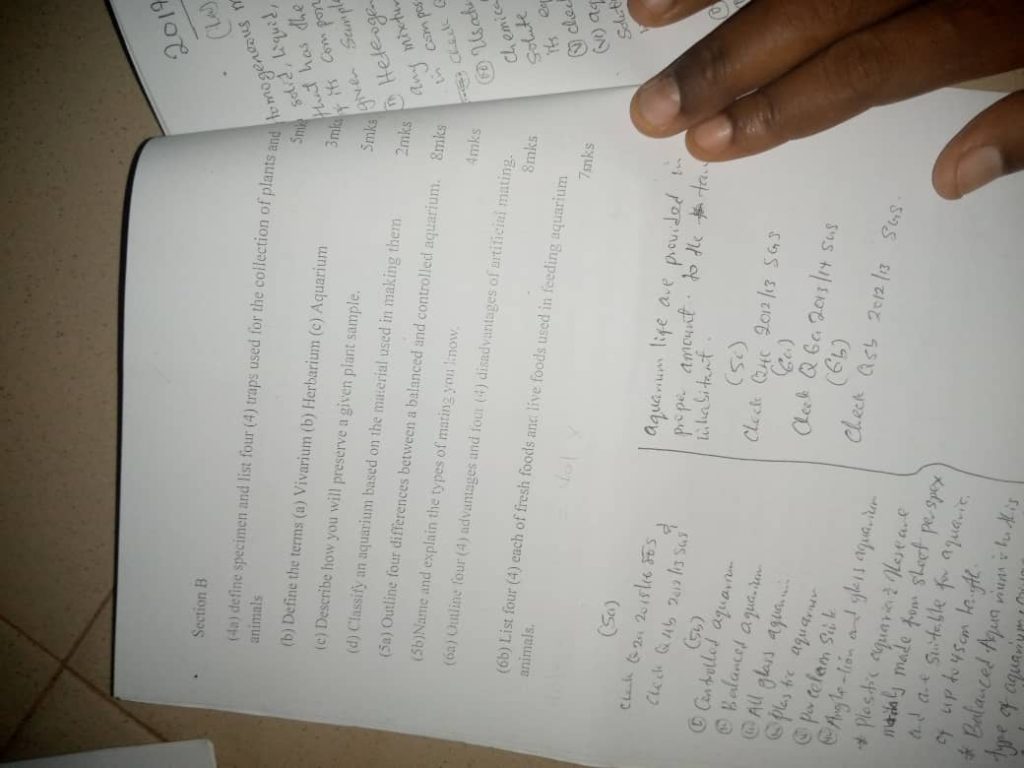 Section B
(4a) define specimen and list four (4) traps used for the collection of plants and
animals 5mks
(b) Define the terms (a) Vivarium (b) Herbarium (c) Aquarium 3mks
(c) Describe how you will preserve a given plant sample. 5mks
(d) Classify an aquarium based on the material used in making them 2mks
(5a) Outline four differences between a balanced and controlled aquarium. 8mks
(5b)Name and explain the types of mating you know. 4mks
(6a) Outline four (4) advantages and four (4) disadvantages of artificial mating.
8mks
(6b) List four (4) each of fresh foods and live foods used in feeding aquarium
animals. 7mks
(5a)
Check Q 2a 2015/16
Check Q 4b 2012/13 SGS
(5b)
Controlled aquarium
Balanced aquarium
All glass aquarium
plastic aquarium
porcelain sink
Angle-iron and glass aquarium
* Plastic aquarium: These are
mainly made from sheet perspex
and are suitable for aquaria
of up to 45cm length.
* Balanced Aquarium: this is
type of aquarium
aquarium life are provided in
proper amount to the
inhabitant.
(5c)
Check 2012/13 SGS
(6a)
Check Q 6a 2013/14 SGS
(6b)
Check Q5b 2012/13 SGS.
2014
homogenous
solid, liquid,
that has the
its
given sample
Heterogen
any mixture
in
chemical
solute
its
check
aq